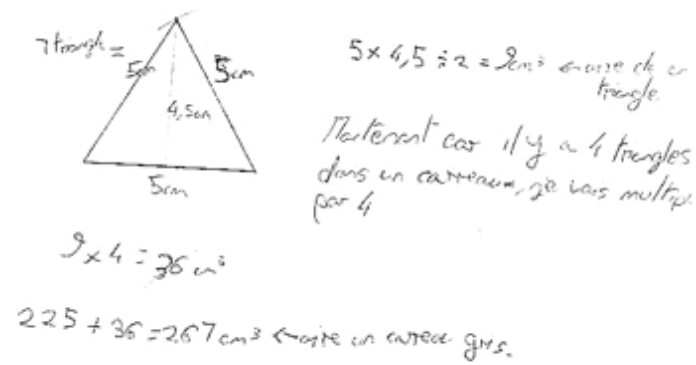 1 triangle =
5cm
5cm
4,5cm
5cm
5 x 4,5 ÷ 2 = 9cm³ ← aire de un
triangle
Maitenant car il y a 4 triangles
dans un carreaux, je vais multip
par 4
9 x 4 = 36 cm³
225 + 36 = 267 cm³ ← aire un carreau gris.